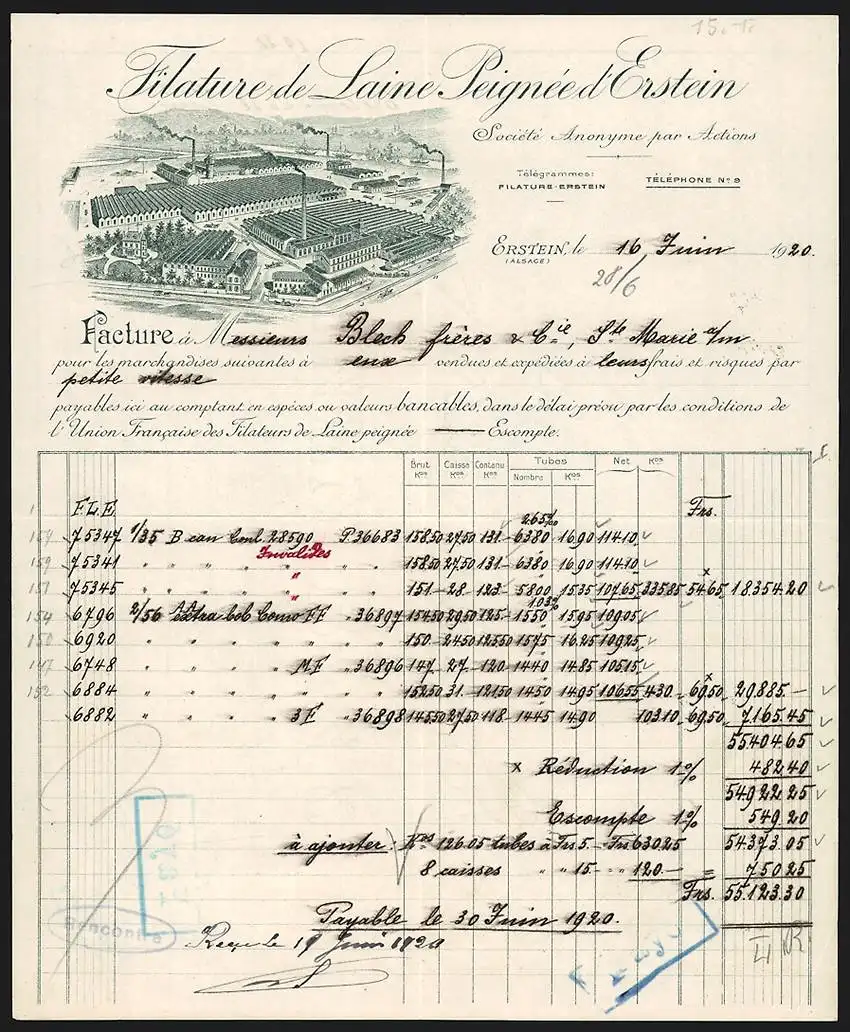 15.-
Filature de Laine Peignée d'Erstein
Société Anonyme par Actions
Télégrammes:
FILATURE-ERSTEIN
TÉLÉPHONE No 9
ERSTEIN, le 16 Juin 1920.
(ALSACE)
28/6
Facture à Messieurs Blech frères & Cie, Ste Marie a/m
pour les marchandises suivantes à eux vendues et expédiées à leurs frais et risques par
petite vitesse
payables ici au comptant en espèces ou valeurs bancables, dans le délai prévu par les conditions de
l'Union Française des Filateurs de Laine peignée — Escompte.
Brut Kos Caisse Kos Contenu Kos Tubes Nombre Kos Net Kos
FLE 265% Frs.
75347 1/35 B can Conl. 28590 P. 36683 158.50 27.50 131.- 6380 16.90 114.10
Invalides
159 75341 " " " " " " 158.50 27.50 131.- 6380 16.90 114.10
"
151 75345 " " " " " " 151.- 28.- 123.- 5800 15.35 107.65 335.85 54.65 18.354.20
"
103%
154 6796 2/56 AA extra bob Como FF " 36897 154.50 29.50 125.- 1550 15.95 109.05
150 6920 " " " " " " 150.- 24.50 125.50 1575 16.25 109.25
147 6748 " " " " MF " 36896 147.- 27.- 120.- 1440 14.85 105.15
152 6884 " " " " " " 152.50 31.- 121.50 1450 14.95 106.55 430.- 69.50 29.885.-
6882 " " " " 3F " 36898 145.50 27.50 118.- 1445 14.90 103.10 69.50 7.165.45
55404.65
x Réduction 1% 482.40
54922.25
Escompte 1% 549.20
à ajouter: Kos 126.05 tubes à Frs 5.- Frs 630.25 54.373.05
8 caisses " " 15.- " " 120.- = 750.25
Frs. 55.123.30
Payable le 30 Juin 1920.
Rencontre
Reçu le 19 Juin 1920